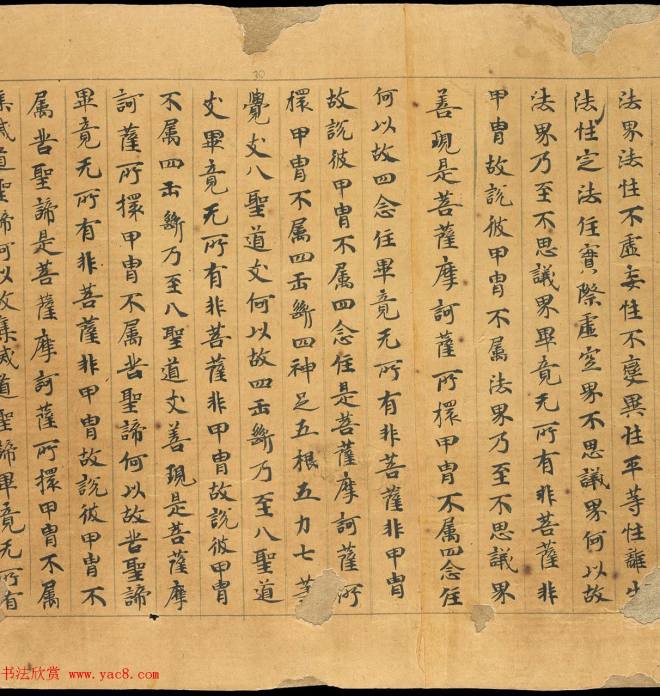 30
法界法性不虛妄性不變異性平等性離生
法性定法住實際虛空界不思議界何以故
法界乃至不思議界畢竟无所有非菩薩非
甲冑故說彼甲冑不属法界乃至不思議界
善現是菩薩摩訶薩所擐甲冑不属四念住
何以故四念住畢竟无所有非菩薩非甲冑
故說彼甲冑不属四念住是菩薩摩訶薩所
擐甲冑不属四正斷四神足五根五力七等
覺支八聖道支何以故四正斷乃至八聖道
支畢竟无所有非菩薩非甲冑故說彼甲冑
不属四正斷乃至八聖道支善現是菩薩摩
訶薩所擐甲冑不属苦聖諦何以故苦聖諦
畢竟无所有非菩薩非甲冑故說彼甲冑不
属苦聖諦是菩薩摩訶薩所擐甲冑不属
集滅道聖諦何以故集滅道聖諦畢竟无所有
书法欣赏 www.yac8.com